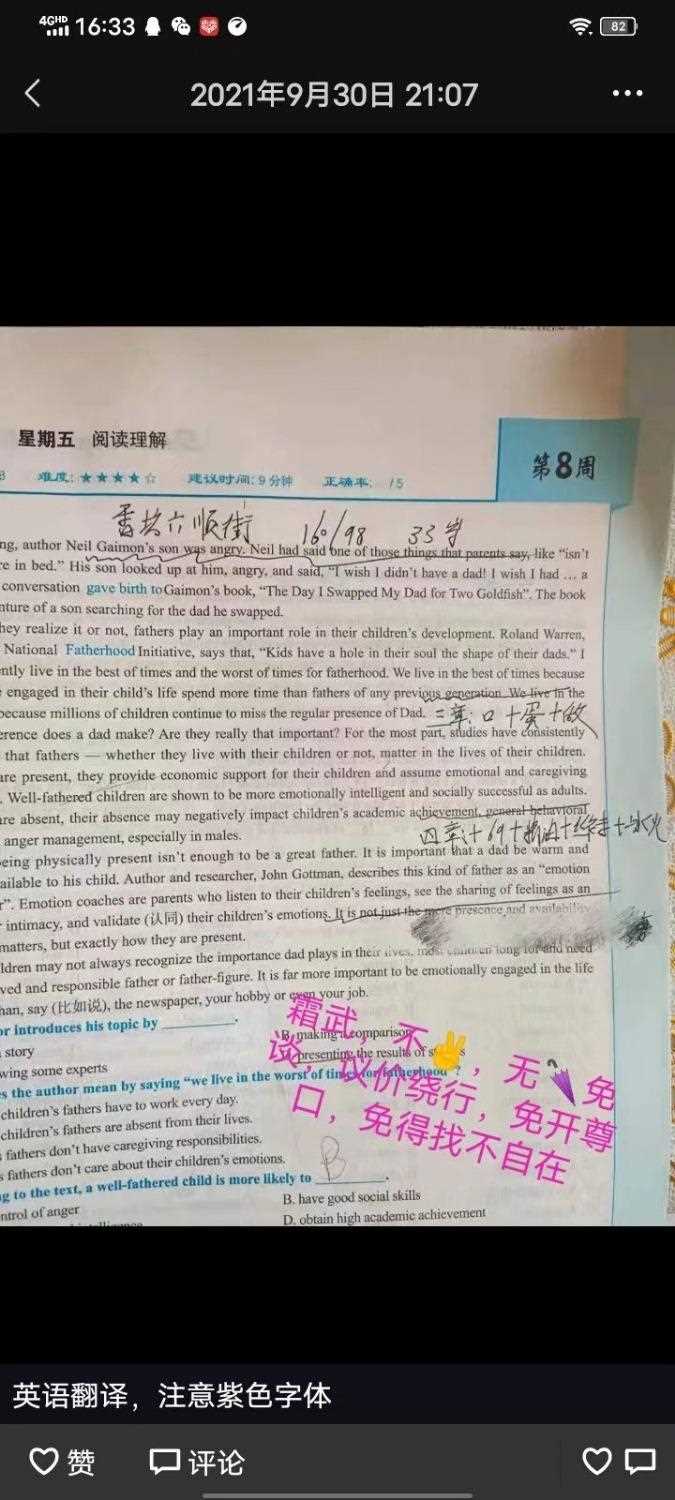 4GHD 16:33 82
2021年9月30日 21:07
星期五 阅读理解
第8周
难度:★★★★☆ 建议时间:9分钟 正确率: /5
六顺街 160/98 33岁
ng, author Neil Gaimon's son was angry. Neil had said one of those things that parents say, like “isn't
e in bed.” His son looked up at him, angry, and said, “I wish I didn't have a dad! I wish I had … a
conversation gave birth to Gaimon's book, “The Day I Swapped My Dad for Two Goldfish”. The book
nture of a son searching for the dad he swapped.
hey realize it or not, fathers play an important role in their children's development. Roland Warren,
National Fatherhood Initiative, says that, “Kids have a hole in their soul the shape of their dads.” I
ntly live in the best of times and the worst of times for fatherhood. We live in the best of times because
engaged in their child's life spend more time than fathers of any previous generation. We live in the
because millions of children continue to miss the regular presence of Dad.
erence does a dad make? Are they really that important? For the most part, studies have consistently
that fathers — whether they live with their children or not, matter in the lives of their children.
are present, they provide economic support for their children and assume emotional and caregiving
. Well-fathered children are shown to be more emotionally intelligent and socially successful as adults.
are absent, their absence may negatively impact children's academic achievement, general behavioral
anger management, especially in males.
eing physically present isn't enough to be a great father. It is important that a dad be warm and
ailable to his child. Author and researcher, John Gottman, describes this kind of father as an “emotion
r”. Emotion coaches are parents who listen to their children's feelings, see the sharing of feelings as an
r intimacy, and validate (认同) their children's emotions. It is not just the mere presence and availability
matters, but exactly how they are present.
ldren may not always recognize the importance dad plays in their lives, most children long for and need
ved and responsible father or father-figure. It is far more important to be emotionally engaged in the life
han, say (比如说), the newspaper, your hobby or even your job.
or introduces his topic by ________.
story
B. making a comparison
wing some experts
presenting the results of
es the author mean by saying “we live in the worst of times for fatherhood”?
children's fathers have to work every day.
children's fathers are absent from their lives.
fathers don't have caregiving responsibilities.
s fathers don't care about their children's emotions.
B
ng to the text, a well-fathered child is more likely to ________.
ntrol of anger
B. have good social skills
D. obtain high academic achievement
霜武，不✌，无🌂免
谈，议价绕行，免开尊
口，免得找不自在
英语翻译，注意紫色字体
赞 评论